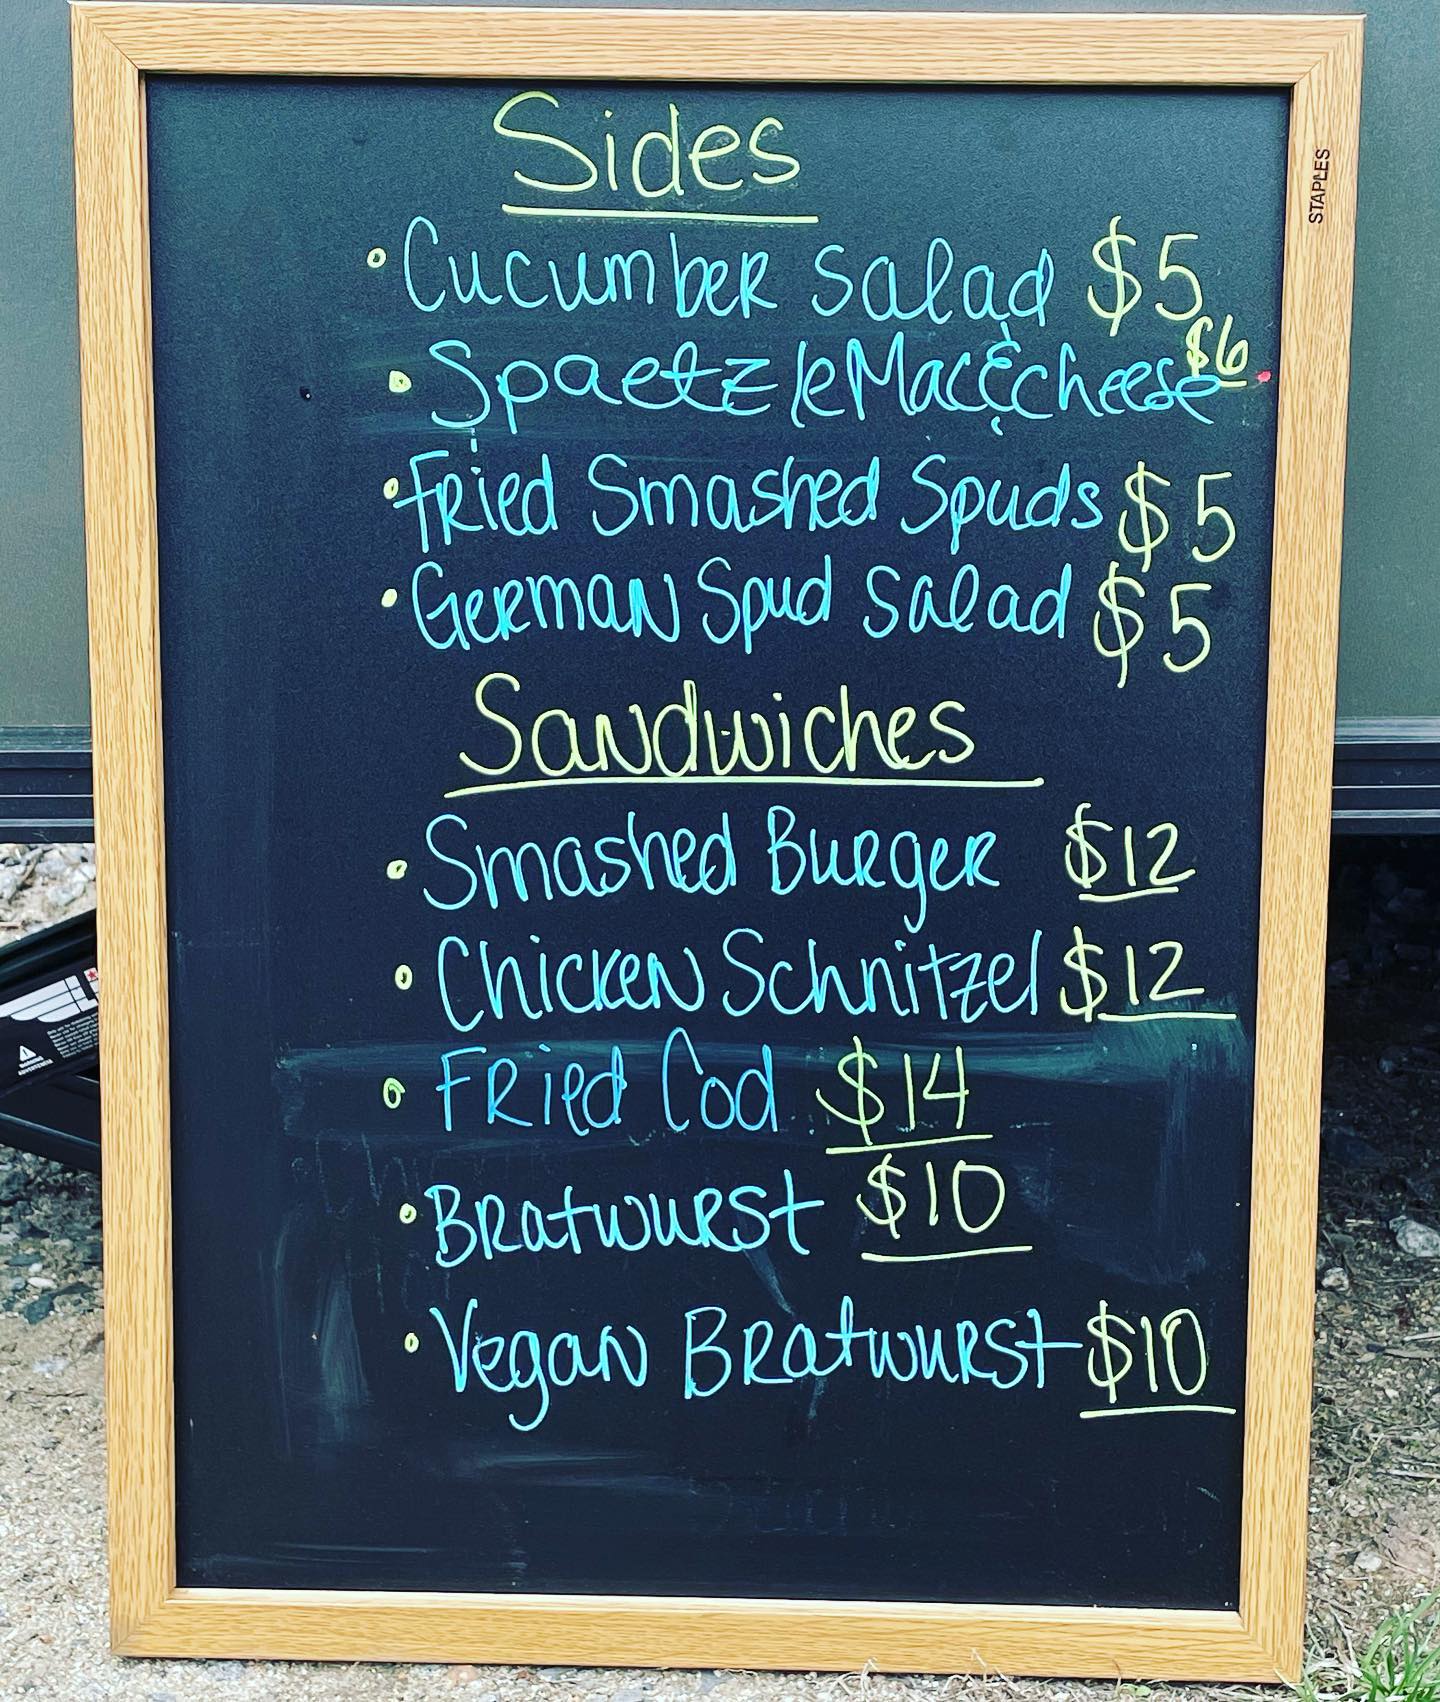 Sides
• Cucumber Salad $5
• Spaetzle Mac & cheese $6
• Fried Smashed Spuds $5
• German Spud Salad $5
Sandwiches
• Smashed Burger $12
• Chicken Schnitzel $12
• Fried Cod $14
• Bratwurst $10
• Vegan Bratwurst $10
STAPLES